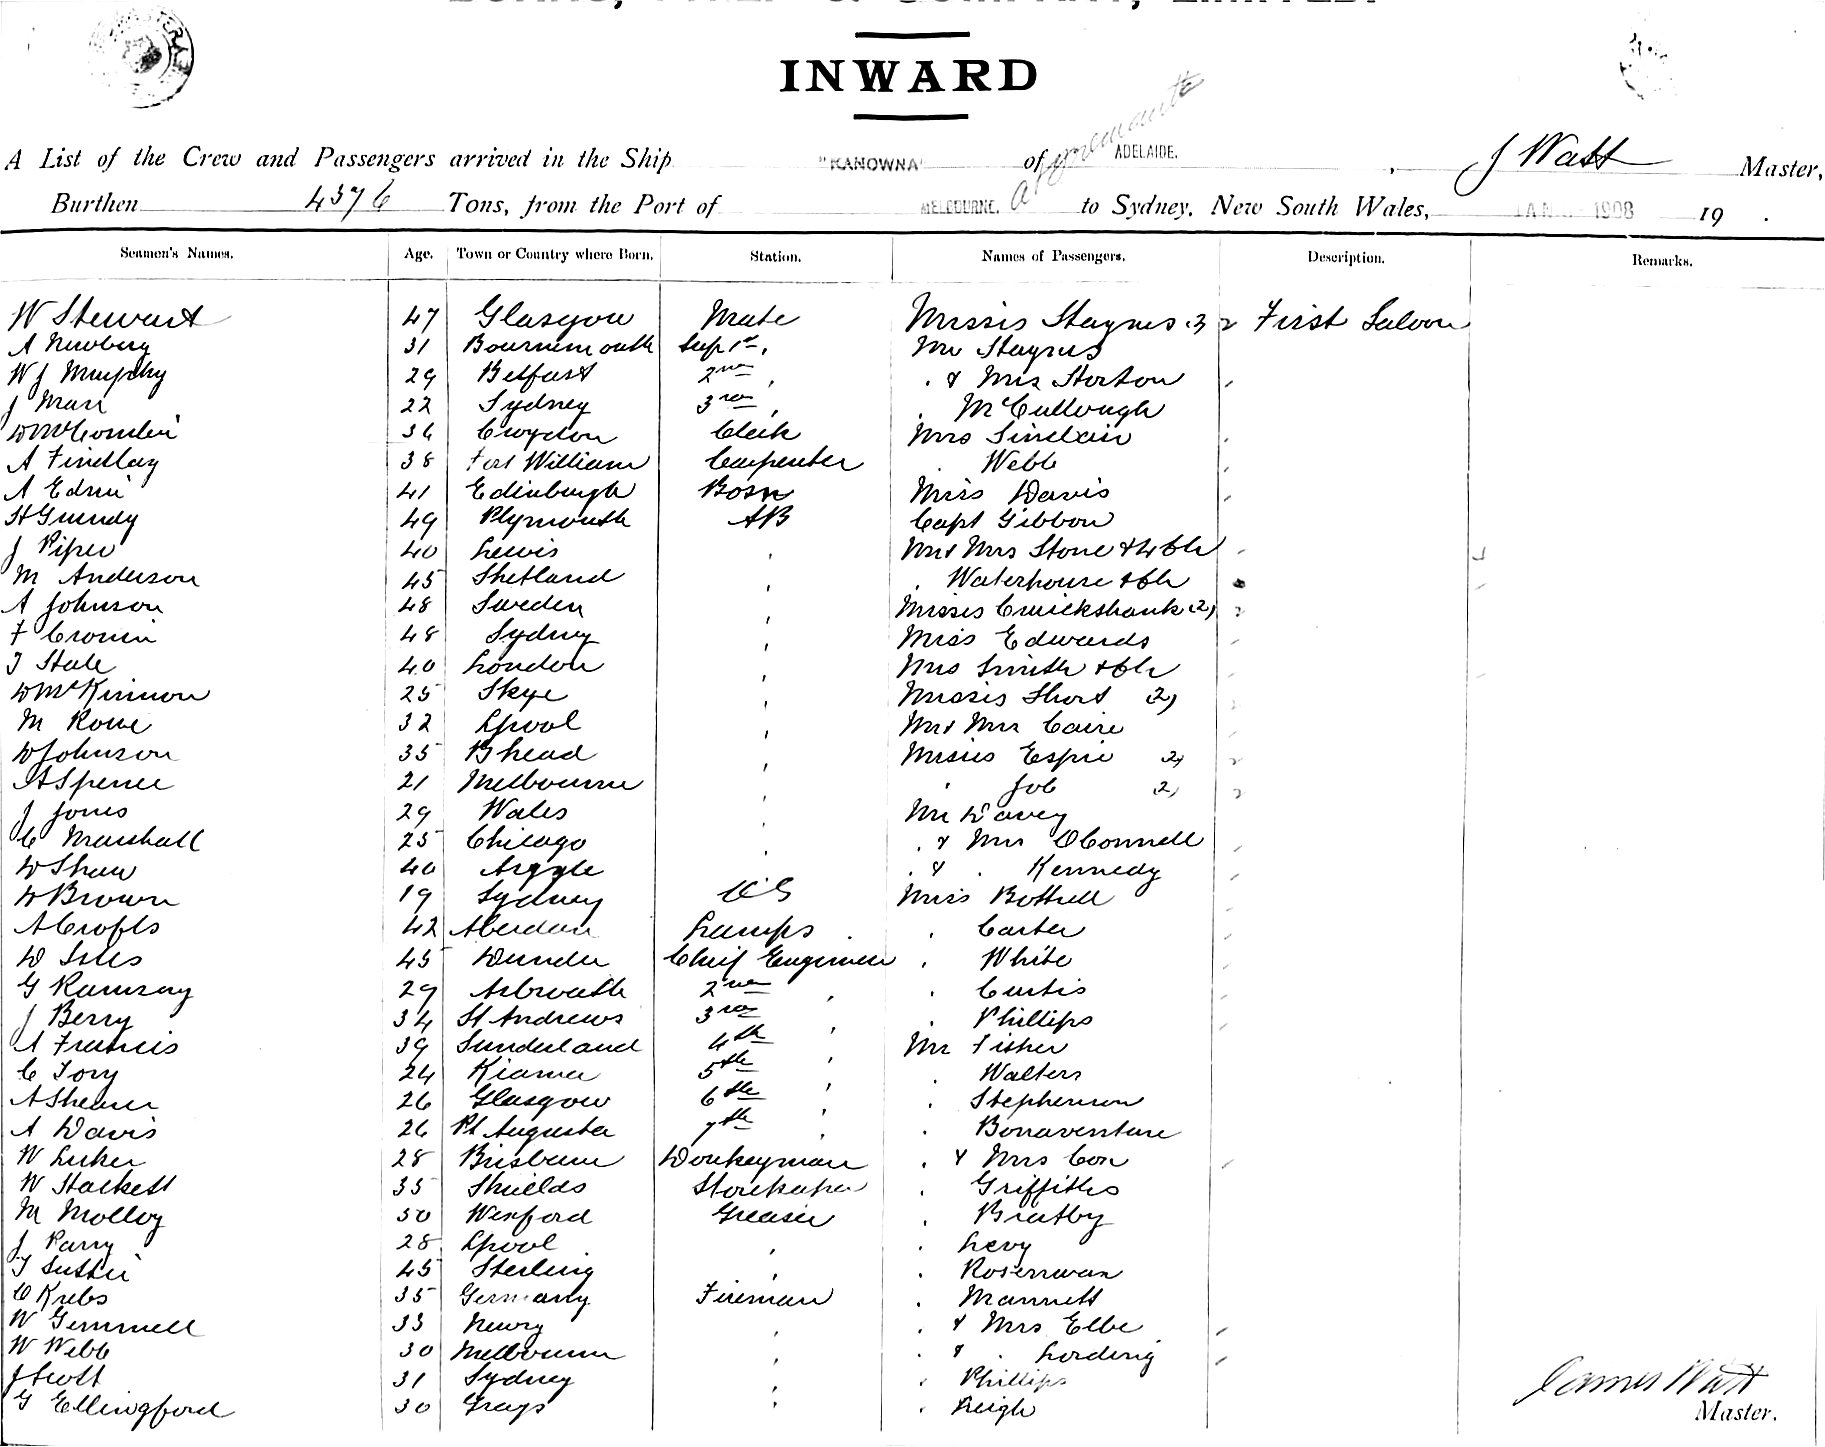 INWARD
A List of the Crew and Passengers arrived in the Ship "KANOWNA" of ADELAIDE. J Watt Master,
Burthen 4376 Tons, from the Port of MELBOURNE. to Sydney, New South Wales, JAN 1908 19 .
Seamen's Names. Age. Town or Country where Born. Station. Names of Passengers. Description. Remarks.
W Stewart 47 Glasgow Mate Misses Staynes 3 First Saloon
A Newbery 31 Bournemouth Sup 1st, Mr Staynes
W J Murphy 29 Belfast 2nd , . & Mrs Horton
J Marr 22 Sydney 3rd , . McCullough
36 Croydon Clerk Mrs Sinclair
A Findlay 38 Fort William Carpenter . Webb
A Edmi 41 Edinburgh Bosn Miss Davis
H Grundy 49 Plymouth AB Capt Gibbon
J Piper 40 Lewis , Mr & Mrs Stone & 4 Ch
M Anderson 45 Shetland , . Waterhouse & Ch
A Johnson 48 Sweden , Misses Cruickshank 2)
F Cronin 48 Sydney , Miss Edwards
T Hale 40 London , Mrs Smith & Ch
D McKinnon 25 Skye , Misses Short 2)
M Rowe 32 Lpool , Mr & Mrs Caire
D Johnson 35 Bhead , Misses Espie 2)
H Spence 21 Melbourne , . Job 2)
J Jones 29 Wales , Mr Davey
C Marshall 25 Chicago , . & Mrs OConnell
D Shaw 40 Argyle . & . Kennedy
D Brown 19 Sydney OS Miss Bottrell
A Crofts 42 Aberdeen Lamps . . Carter
D Isles 45 Dundee Chief Engineer . White
G Ramsay 29 Arbroath 2nd , . Curtis
J Berry 34 St Andrews 3rd , . Phillips
A Francis 39 Sunderland 4th , Mr Fisher
C Tory 24 Kiama 5th , . Walters
A Shearer 26 Glasgow 6th , . Stephenson
A Davis 26 Pt Augusta 7th , . Bonaventure
W Luker 28 Brisbane Donkeyman . & Mrs Cox
W Hackett 35 Shields Storekeeper . Griffiths
M Molloy 50 Wexford Greaser . Bratby
J Parry 28 Lpool , . Levy
T Suttie 45 Sterling , . Rosenwax
C Krebs 35 Germany Fireman . Mannett
W Gemmell 33 Newry , . & Mrs Elbe
W Webb 30 Melbourne , . & . Lording
J Scott 31 Sydney , . Phillips
G Ellingford 30 Grays , . Leigh
James Watt
Master.